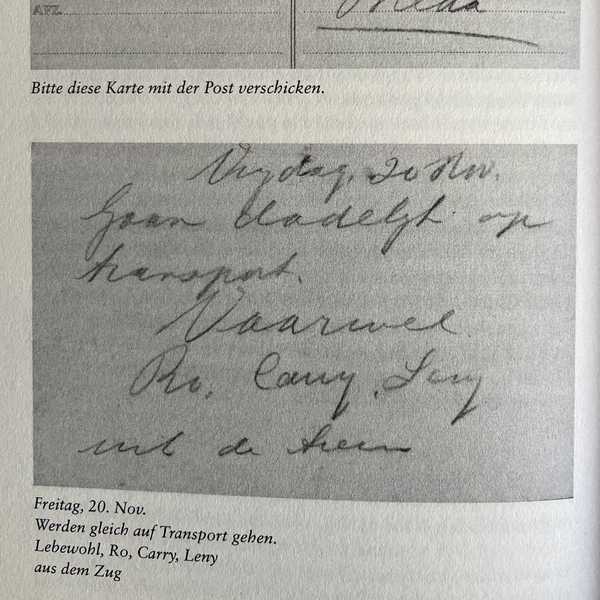 AFZ.
Breda
Bitte diese Karte mit der Post verschicken.
Vrijdag, 20 Nov.
Gaan dadelijk op
transport.
Vaarwel
Ro, Carry, Leny
uit de trein
Freitag, 20. Nov.
Werden gleich auf Transport gehen.
Lebewohl, Ro, Carry, Leny
aus dem Zug